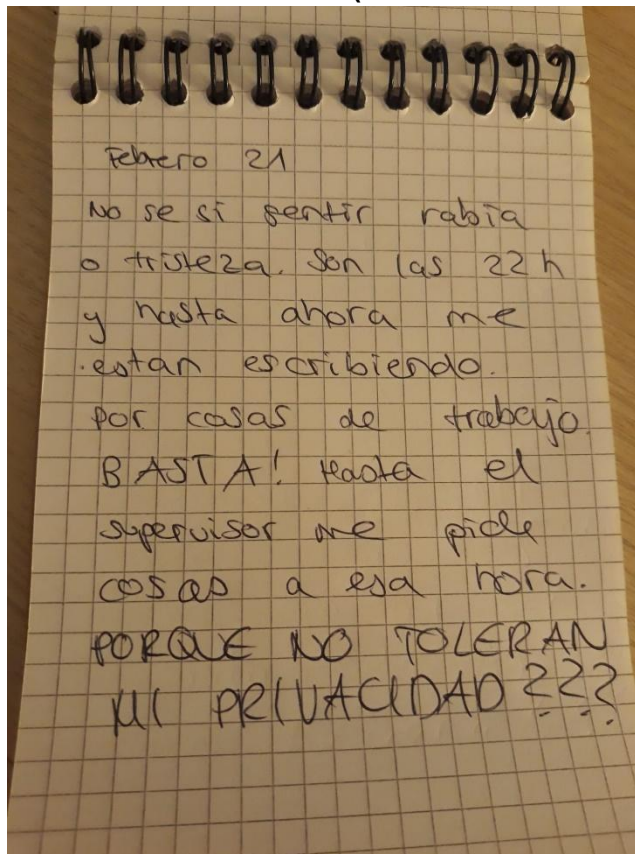 Febrero 21
No se si sentir rabia
o tristeza. Son las 22 h
y hasta ahora me
estan escribiendo.
por cosas de trabajo.
BASTA! Hasta el
supervisor me pide
cosas a esa hora.
PORQUE NO TOLERAN
MI PRIVACIDAD???